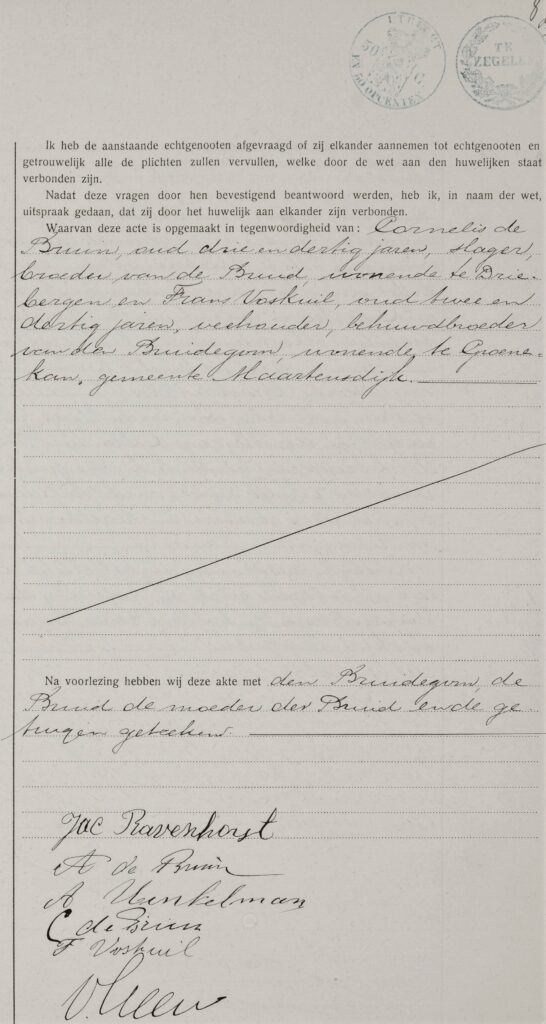 TE
ZEGELEN
50 OPCENTEN
Ik heb de aanstaande echtgenooten afgevraagd of zij elkander aannemen tot echtgenooten en
getrouwelijk alle de plichten zullen vervullen, welke door de wet aan den huwelijken staat
verbonden zijn.
Nadat deze vragen door hen bevestigend beantwoord werden, heb ik, in naam der wet,
uitspraak gedaan, dat zij door het huwelijk aan elkander zijn verbonden.
Waarvan deze acte is opgemaakt in tegenwoordigheid van: Cornelis de
Bruin, oud drie en dertig jaren, slager,
broeder van de Bruid, wonende te Drie-
bergen en Frans Voskuil, oud twee en
dertig jaren, veehouder, behuwdbroeder
van den Bruidegom, wonende te Groene-
kan, gemeente Maartensdijk.
Na voorlezing hebben wij deze akte met den Bruidegom, de
Bruid de moeder der Bruid en de ge-
tuigen geteekend.
Jac Ravenhorst
A de Bruin
A
C de Bruin
F Voskuil